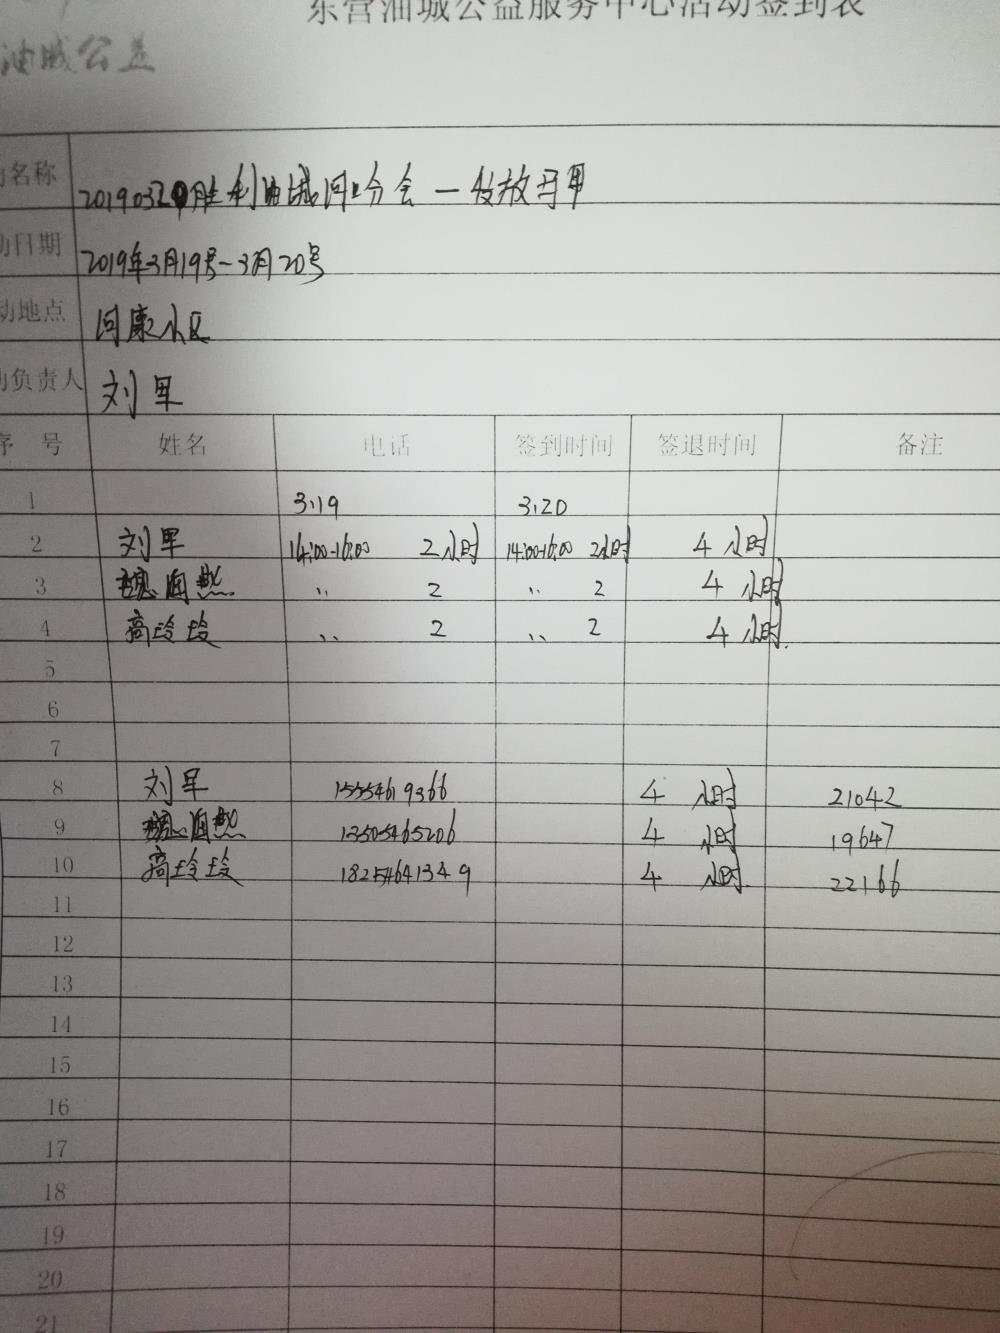 东营油城公益服务中心活动签到表
油城公益
动名称 20190320胜利油城河口分会一发放马甲
动日期 2019年3月19号-3月20号
动地点 河康小区
动负责人 刘军
序号 姓名 电话 签到时间 签退时间 备注
1 3.19 3.20
2 刘军 14:00-16:00 2小时 14:00-16:00 2小时 4小时
3 魏海燕 〃 2 〃 2 4小时
4 高玲玲 〃 2 〃 2 4小时
5
6
7
8 刘军 15554619366 4小时 21042
9 魏海燕 13505465206 4小时 19647
10 高玲玲 18254641349 4小时 22166
11
12
13
14
15
16
17
18
19
20
21